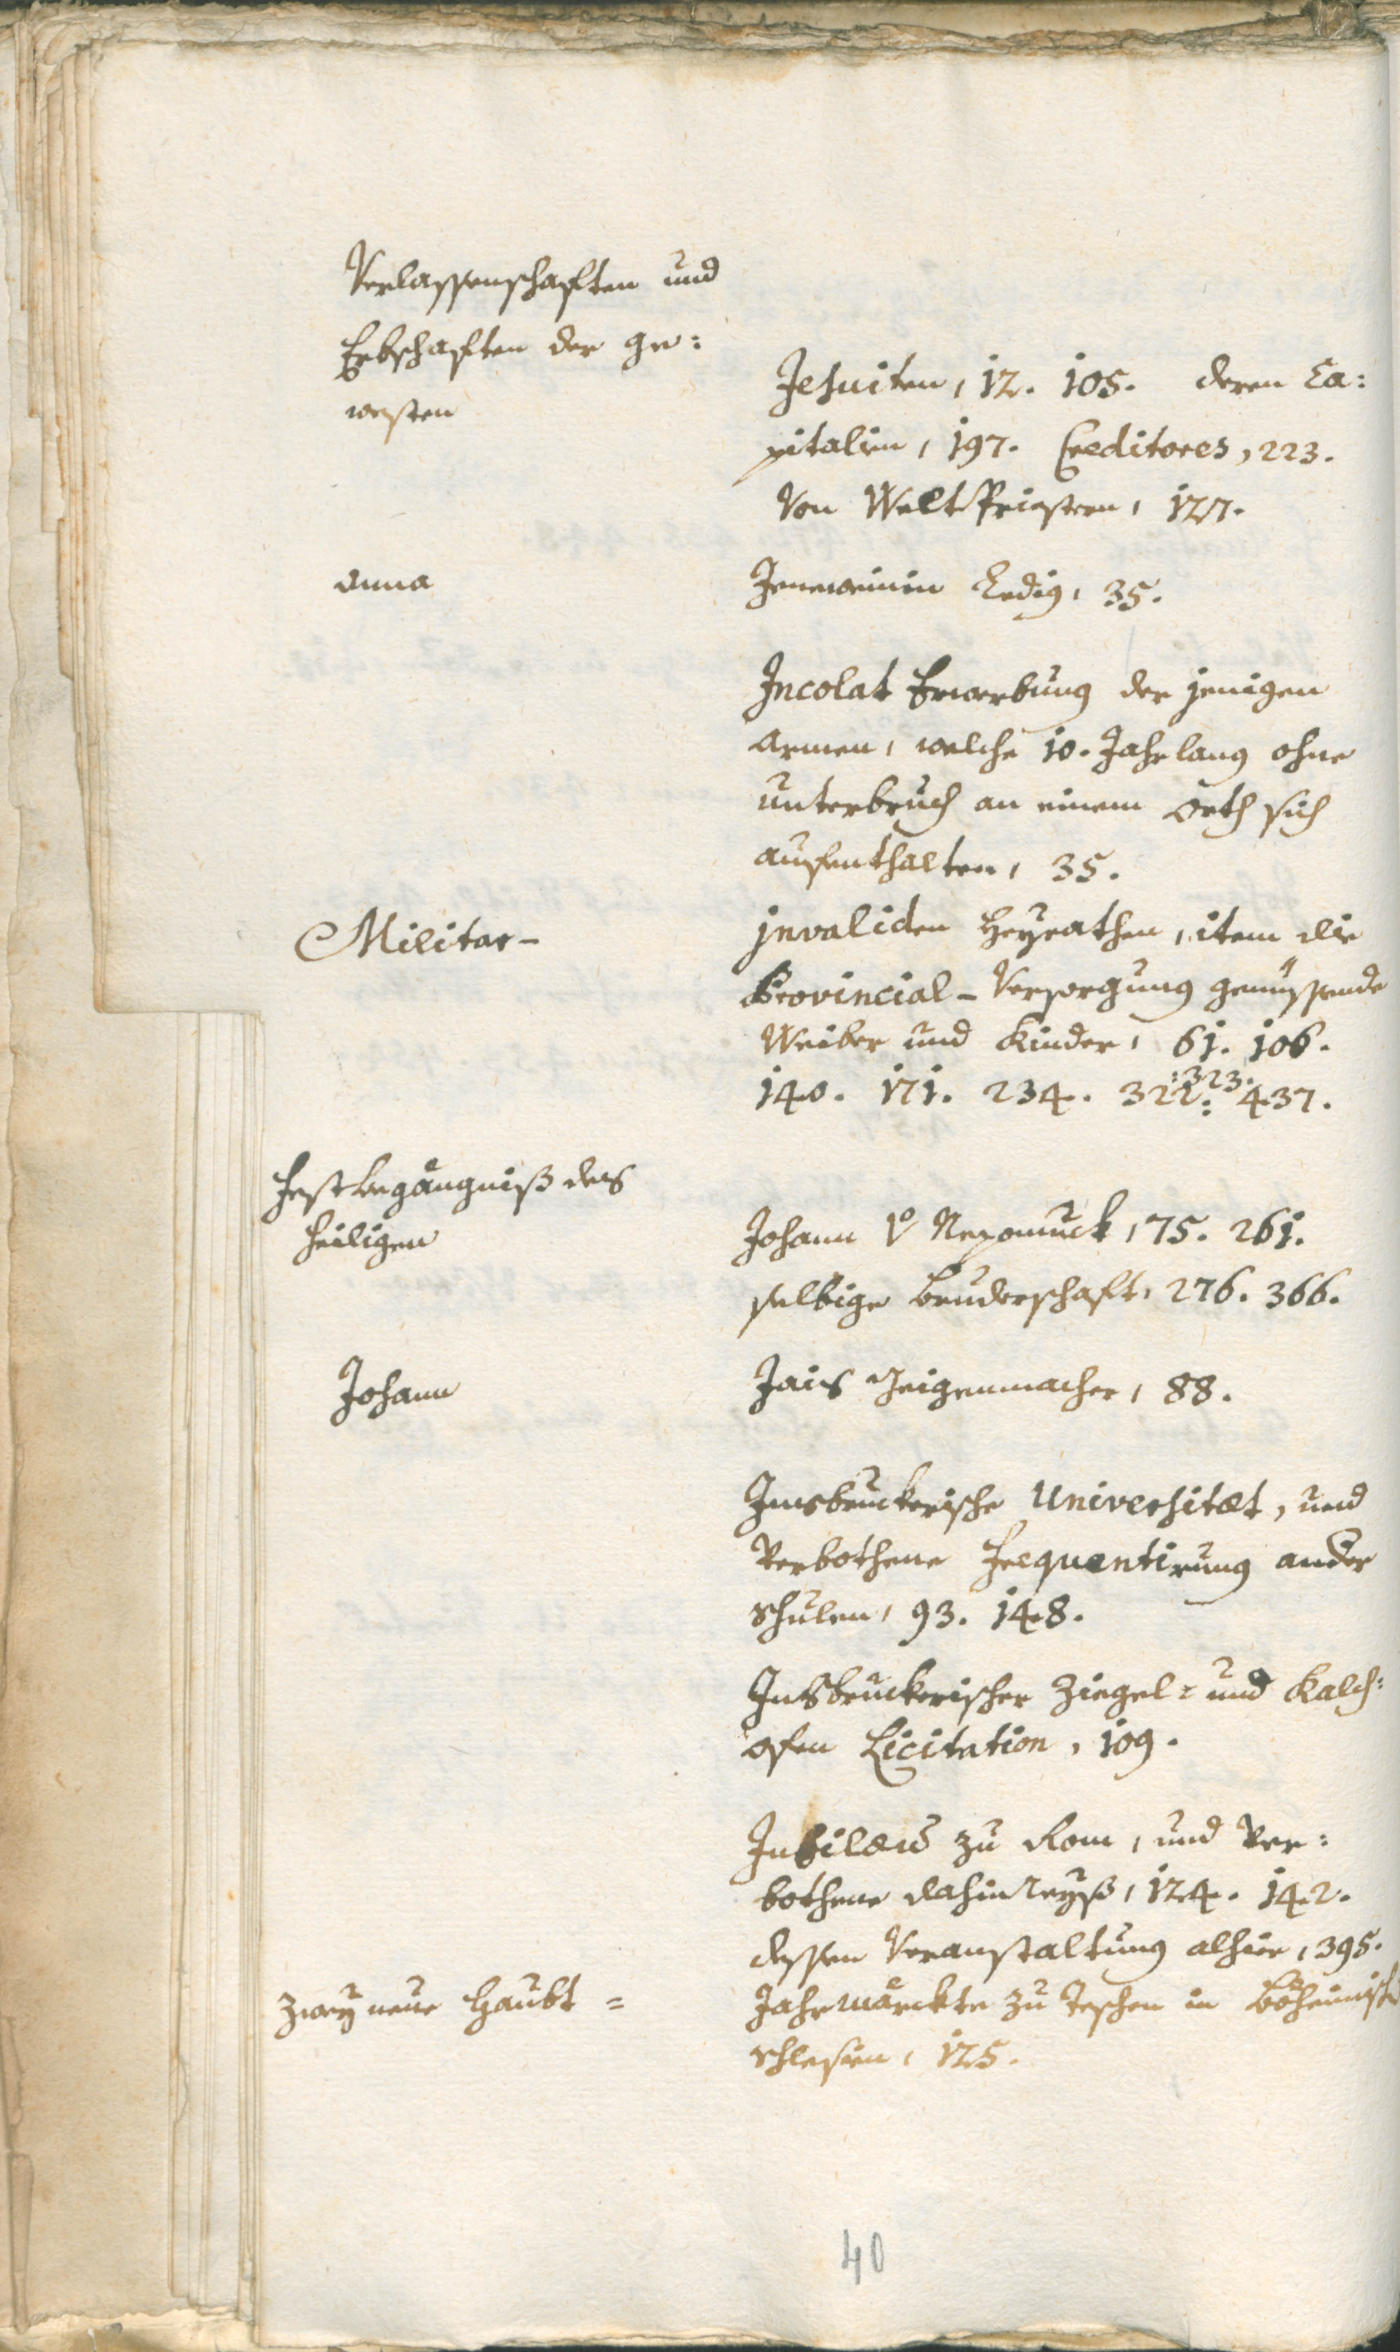 Verlassenschaften und
Erbschaften der ge:
westen
Jesuiten, 12. 105. deren Ca:
pitalien, 197. Creditores, 223.
Von WeltPriestern, 127.
Anna
Jeneweinin Ledig, 35.
Incolat Erwerbung der jenigen
Armen, welche 10. Jahr lang ohne
unterbruch an einem Orth sich
aufenthalten, 35.
Militar-
jnvaliden Heyrathen, item die
Provincial-Versorgung genüssende
Weiber und Kinder, 61. 106.
:323.
140. 171. 234. 322: 437.
Festbegängniß des
Heiligen
Johann V. Nepomuck, 75. 261.
selbige Bruderschaft, 276. 366.
Johann
Jais Geigenmacher, 88.
Innsbruckerische Universitæt, und
Verbothene Frequentirung ander
Schulen, 93. 148.
Insbruckerischer Ziegel- und Kalch:
ofen Licitation, 109.
Jubilæum zu Rom, und Ver:
bothene dahin Reyß, 124. 142.
dessen Veranstaltung alhier, 395.
Zwey neue Haubt =
Jahrmärckte zu Teschen in Böheimisch
Schlesien, 125.
40